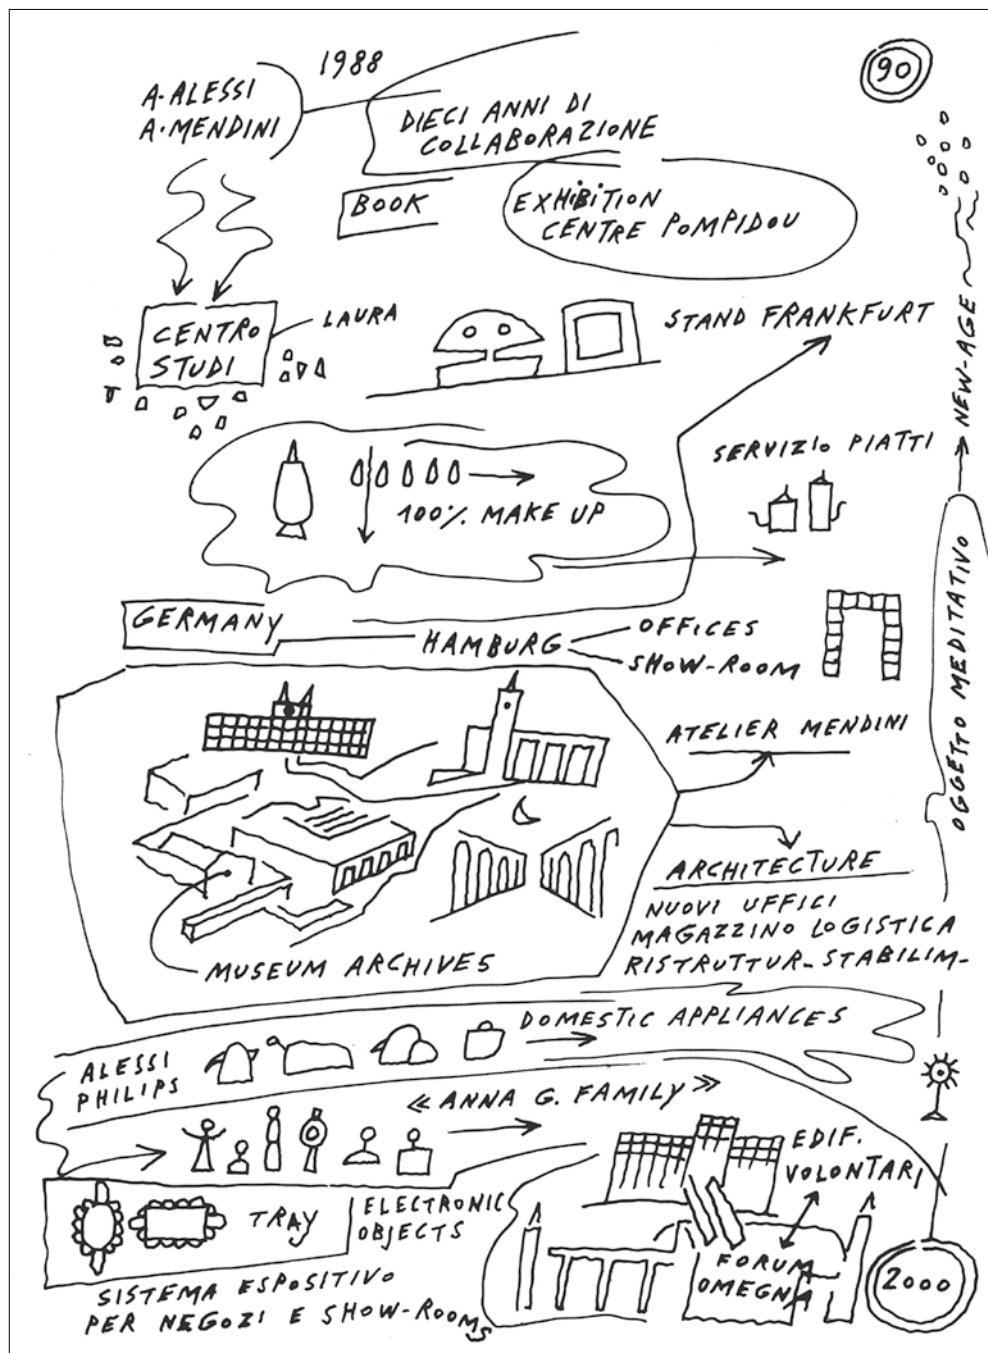 1988
90
A. ALESSI
A. MENDINI
DIECI ANNI DI
COLLABORAZIONE
BOOK
EXHIBITION
CENTRE POMPIDOU
CENTRO
STUDI
LAURA
STAND FRANKFURT
NEW-AGE
SERVIZIO PIATTI
100% MAKE UP
OGGETTO MEDITATIVO
GERMANY
HAMBURG
OFFICES
SHOW-ROOM
ATELIER MENDINI
ARCHITECTURE
NUOVI UFFICI
MAGAZZINO LOGISTICA
RISTRUTTUR- STABILIM-
MUSEUM ARCHIVES
DOMESTIC APPLIANCES
ALESSI
PHILIPS
« ANNA G. FAMILY »
EDIF.
VOLONTARI
TRAY
ELECTRONIC
OBJECTS
FORUM
OMEGNA
2000
SISTEMA ESPOSITIVO
PER NEGOZI E SHOW-ROOMS